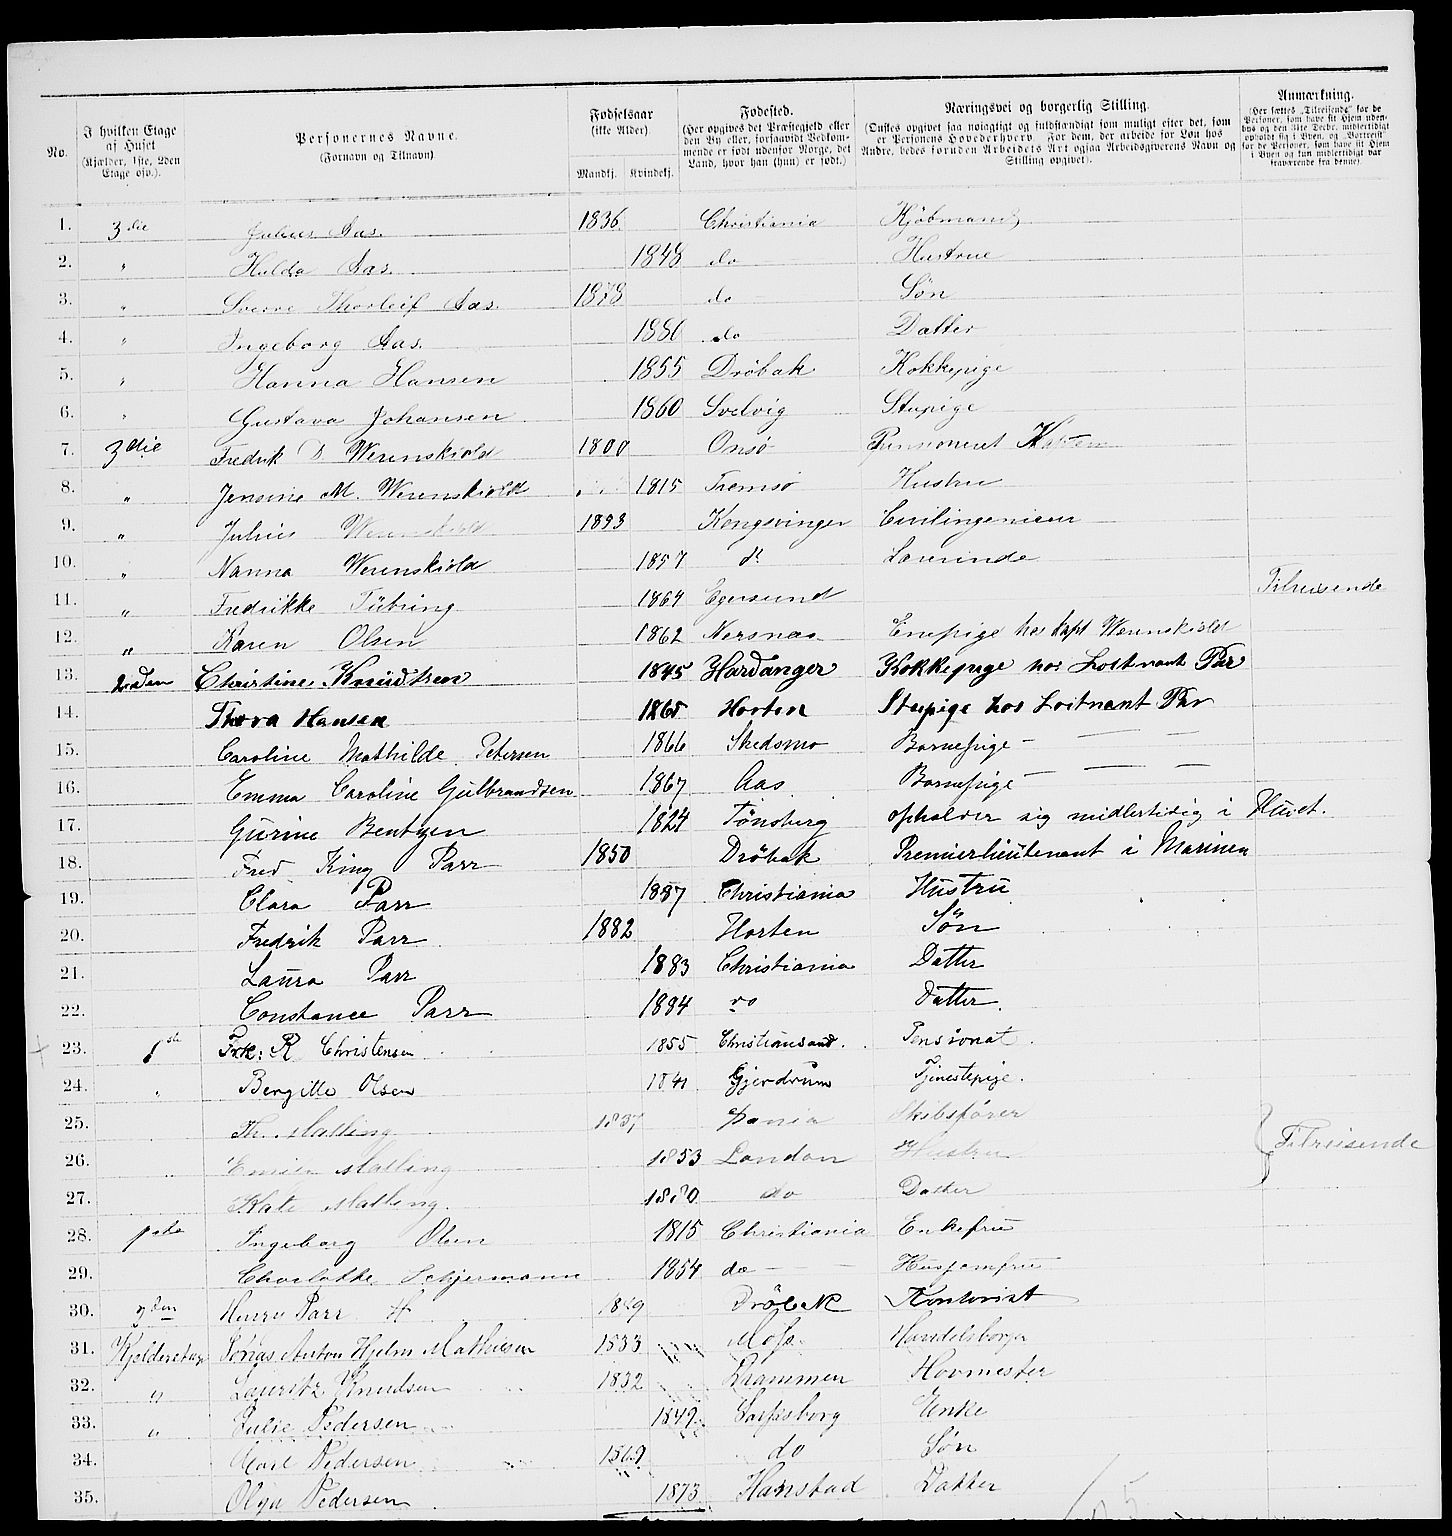 No.
I hvilken Etage af Huset (Kjælder, 1ste, 2den Etage osv.).
Personernes Navne. (Fornavn og Tilnavn)
Fødselsaar (ikke Alder) Mandkj. Kvindekj.
Fødested. (Her opgives det Præstegjeld eller den By eller, forsaavidt Vedkommende er født udenfor Norge, det Land, hvor han (hun) er født.)
Næringsvei og borgerlig Stilling. (Ønskes opgivet saa nøiagtigt og fuldstændigt som muligt efter det, som er Personens Hovederhverv. For dem, der arbeide for Løn hos Andre, bedes foruden Arbeidets Art ogsaa Arbeidsgiverens Navn og Stilling opgivet).
Anmærkning. (Her sættes „Tilreisende" for de Personer, som have sit Hjem udenbys og den 31te Decbr. midlertidigt opholdt sig i Byen, og „Bortreist" for de Personer, som have sit Hjem i Byen og kun midlertidigt var fraværende fra denne).
1. 3die Julius Aas. 1836 Christiania Kjöbmand
2. " Hulda Aas. 1848 do Hustrue
3. " Sverre Thorleif Aas. 1878 do Sön
4. " Ingeborg Aas. 1880 do Datter
5. " Hanna Hansen 1855 Dröbak Kokkepige
6. " Gustava Johansen 1860 Svelvig Stupige
7. 3die Fredrik D Werenskiold 1800 Onsö Pensioneret Kaptein
8. " Jensine M. Werenskiold 1815 Tromsö Hustru
9. " Julius Werenskiold 1853 Kongsvinger Civilingenieur
10. " Nanna Werenskiold 1857 do Lærerinde
11. " Fredrikke Tübring 1864 Egersund Tilreisende
12. " Karen Olsen 1862 Nersnæs Enepige hos Kapt Werenskiold
13. 2den Christine Knüdtsen 1845 Hardanger Kokkepige hos Loitnant Par
14. Thora Hansen 1865 Horten Stupige hos Loitnant Par
15. Caroline Mathilde Petersen 1866 Skedsmo Barnepige — — —
16. Emma Caroline Gulbrandsen 1867 Aas Barnepige — — —
17. Gurine Bentzen 1824 Tönsberg opholder sig midlertidig i Huset.
18. Fred King Parr 1850 Dröbak Premierlieutenant i Marinen
19. Clara Parr 1857 Christiania Hustru
20. Fredrik Parr 1882 Horten Sön
21. Laura Parr 1883 Christiania Datter
22. Constance Parr 1884 do Datter.
23. 1ste Frk: R Christensen 1855 Christiansand. Pensionat.
24. " Bergitte Olsen 1841 Gjerdrum Tjenestepige.
25. Th. Malling 1837 Skibsförer
26. Malling 1853 London Hustru Tilreisende
27. Kate Malling. 1880 do Datter
28. 1ste Ingeborg Olsen 1815 Christiania Enkefru
29. Charlotte Schjermann 1854 do — — Husjomfru
30. 2den Henry Parr H 1849 Dröbak Kontorist
31. Kjelderetage Jonas Anton Hjelm Mathisen 1833 Moss. Handelsborger
32. " Lauritz Knudsen 1832 Drammen Hovmester
33. " Julie Pedersen 1849 Sarpsborg Enke
34. Carl Pedersen 1869 do Sön
35. Olga Pedersen 1873 Hanstad Datter